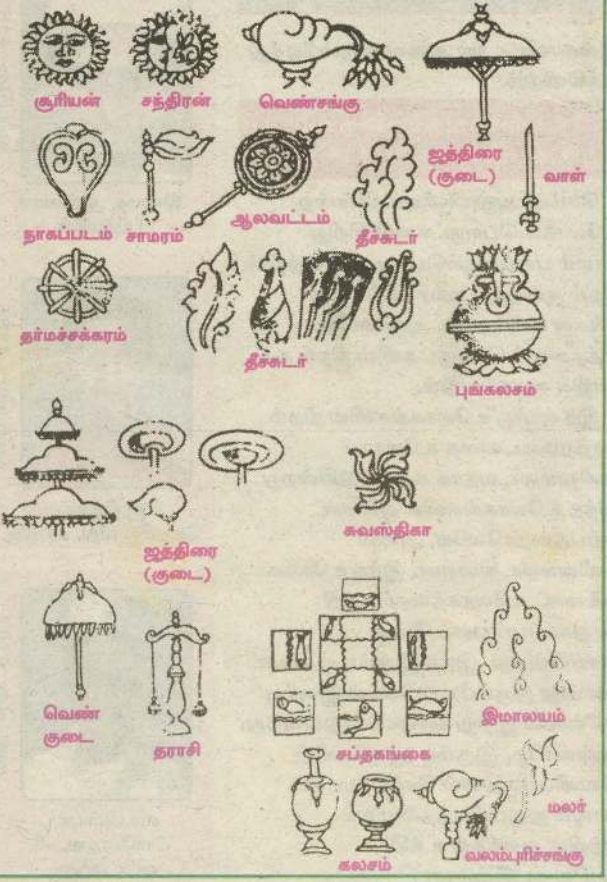 சூரியன்
சந்திரன்
வெண்சங்கு
ஜத்திரை
(குடை)
வாள்
நாகப்படம்
சாமரம்
ஆலவட்டம்
தீச்சுடர்
தர்மச்சக்கரம்
தீச்சுடர்
புங்கலசம்
ஜத்திரை
(குடை)
சுவஸ்திகா
வெண்
குடை
தராசி
சப்தகங்கை
இமாலயம்
கலசம்
வலம்புரிச்சங்கு
மலர்